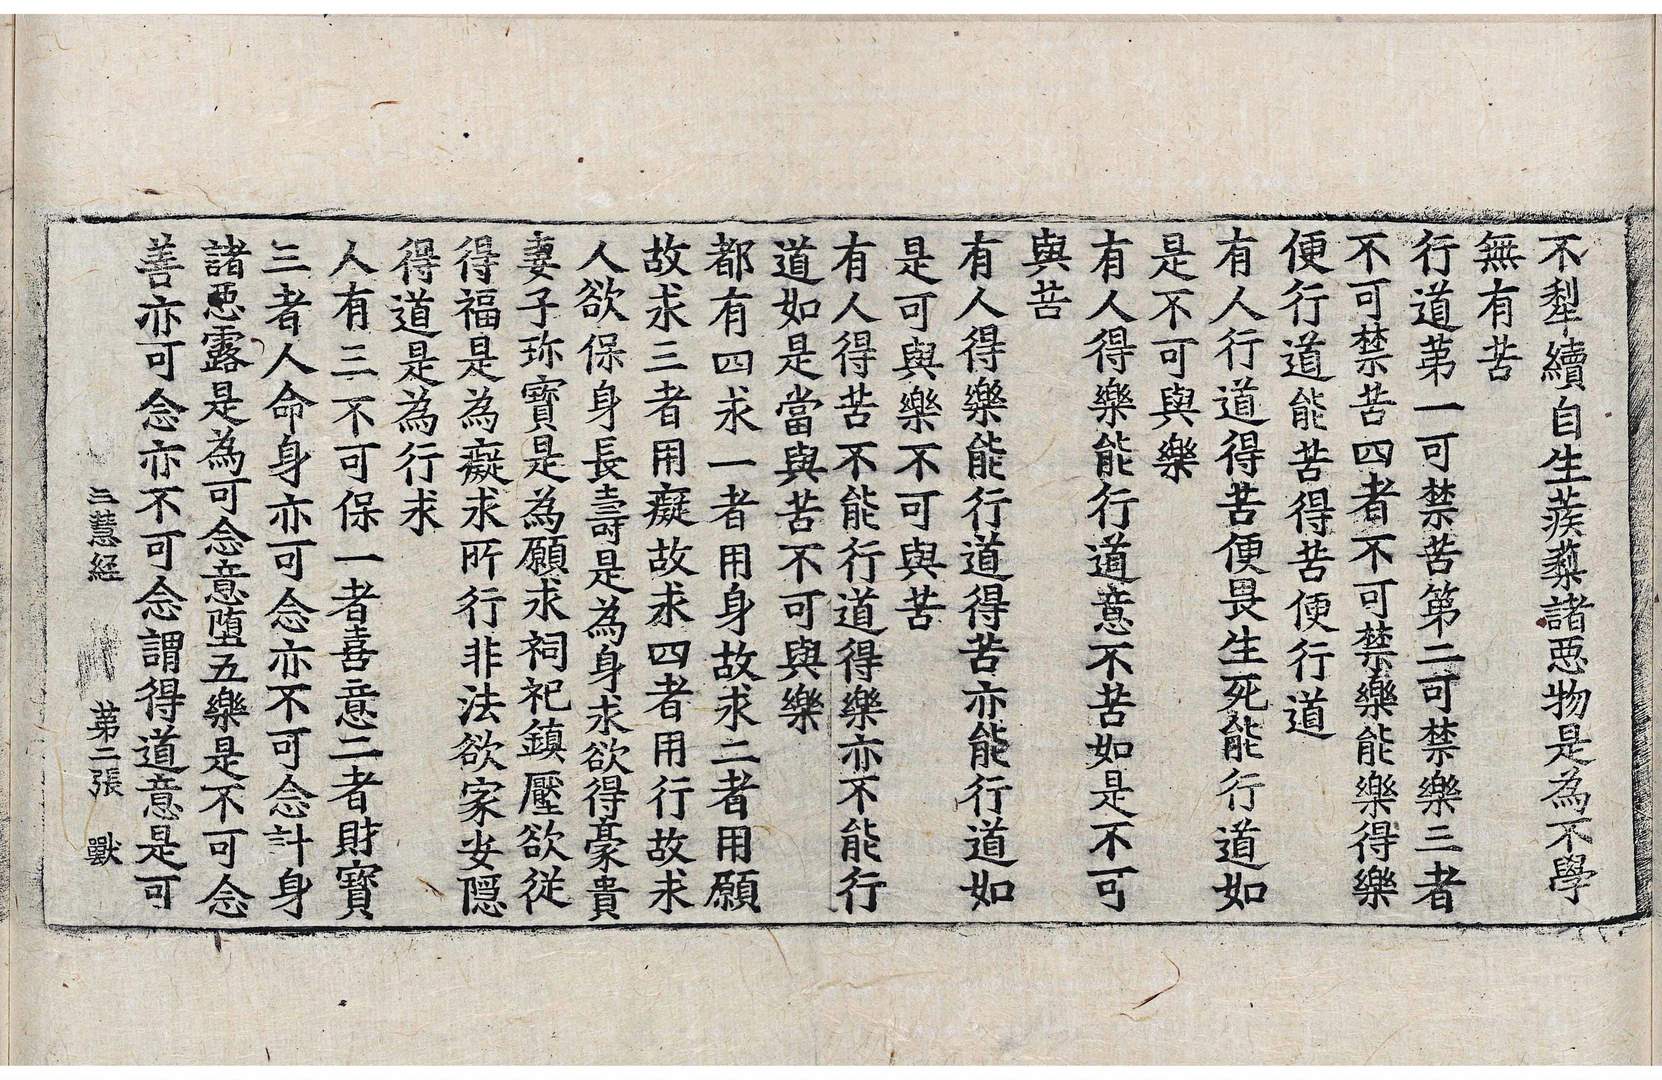 不犁續自生蒺䔧諸惡物是為不學
無有苦
行道第一可禁苦第二可禁樂三者
不可禁苦四者不可禁樂能樂得樂
便行道能苦得苦便行道
有人行道得苦便畏生死能行道如
是不可與樂
有人得樂能行道意不苦如是不可
與苦
有人得樂能行道得苦亦能行道如
是可與樂不可與苦
有人得苦不能行道得樂亦不能行
道如是當與苦不可與樂
都有四求一者用身故求二者用願
故求三者用癡故求四者用行故求
人欲保身長壽是為身求欲得豪貴
妻子珎寶是為願求祠祀鎮壓欲從
得福是為癡求所行非法欲家安隱
得道是為行求
人有三不可保一者喜意二者財寶
三者人命身亦可念亦不可念計身
諸惡露是為可念意墮五樂是不可念
善亦可念亦不可念謂得道意是可
三慧經 第二張 獸